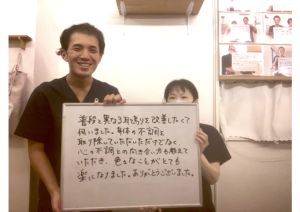 普段と異なる耳鳴りを改善したくて
伺いました。身体の不調を
取り除いていただいただけでなく、
心の不調との向き合い方も教えて
いただき、色んなことがとても
楽になりました。ありがとうございました。